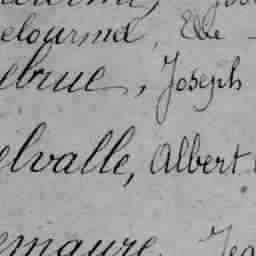 elourme, Elie
ebrue, Joseph
elvalle, Albert
emaure, Jea